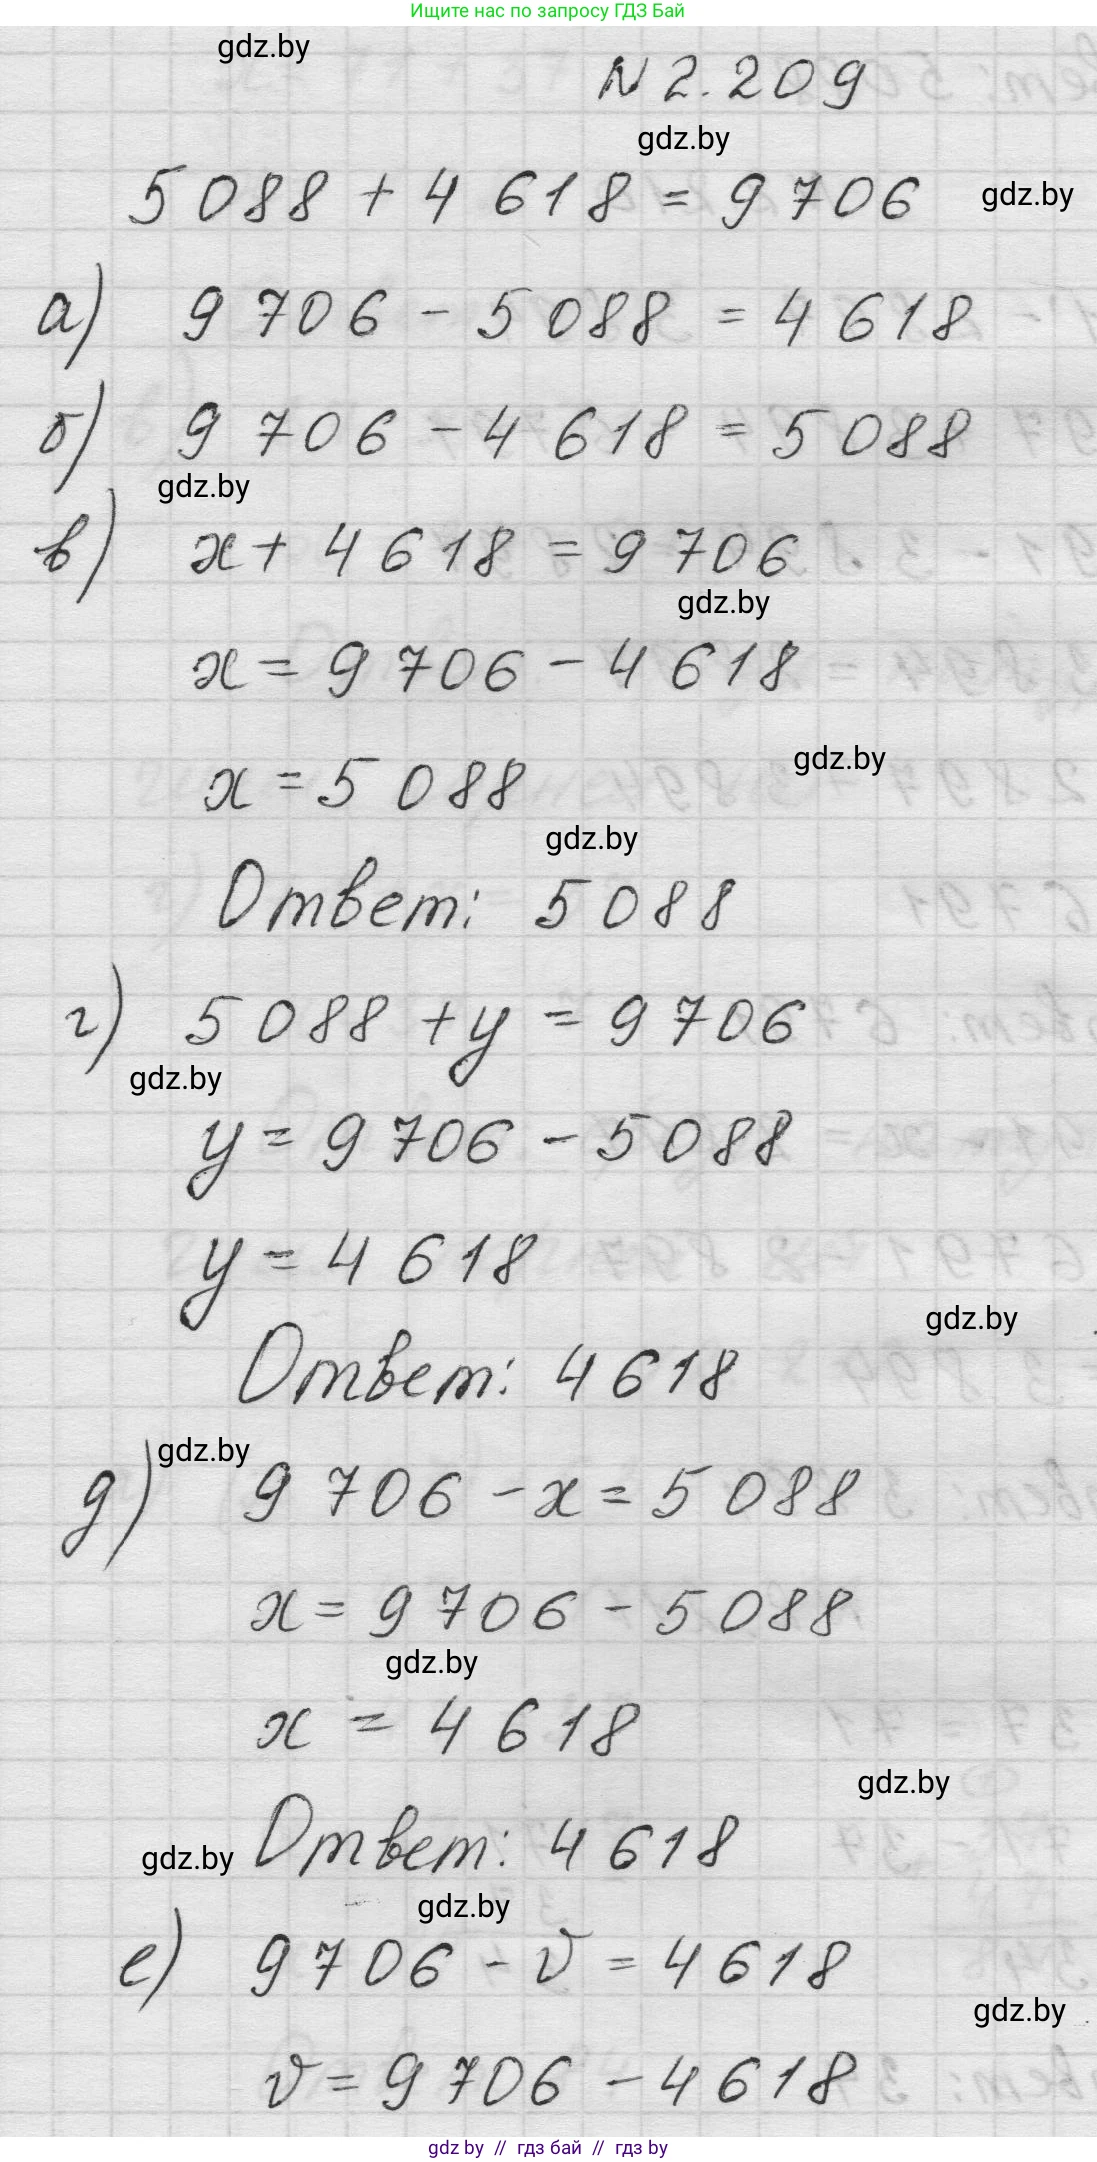 Ищите нас по запросу ГДЗ Бай
gdz.by
N 2.209
gdz.by
5088 + 4618 = 9706
gdz.by
а) 9706 - 5088 = 4618
б) 9706 - 4618 = 5088
gdz.by
в) x + 4618 = 9706
gdz.by
x = 9706 - 4618
gdz.by
x = 5088
gdz.by
Ответ: 5088
г) 5088 + y = 9706
gdz.by
y = 9706 - 5088
y = 4618
gdz.by
Ответ: 4618
gdz.by
д) 9706 - x = 5088
x = 9706 - 5088
gdz.by
x = 4618
gdz.by
Ответ: 4618
gdz.by
gdz.by
е) 9706 - v = 4618
gdz.by
v = 9706 - 4618
gdz by // гдз бай // гдз by